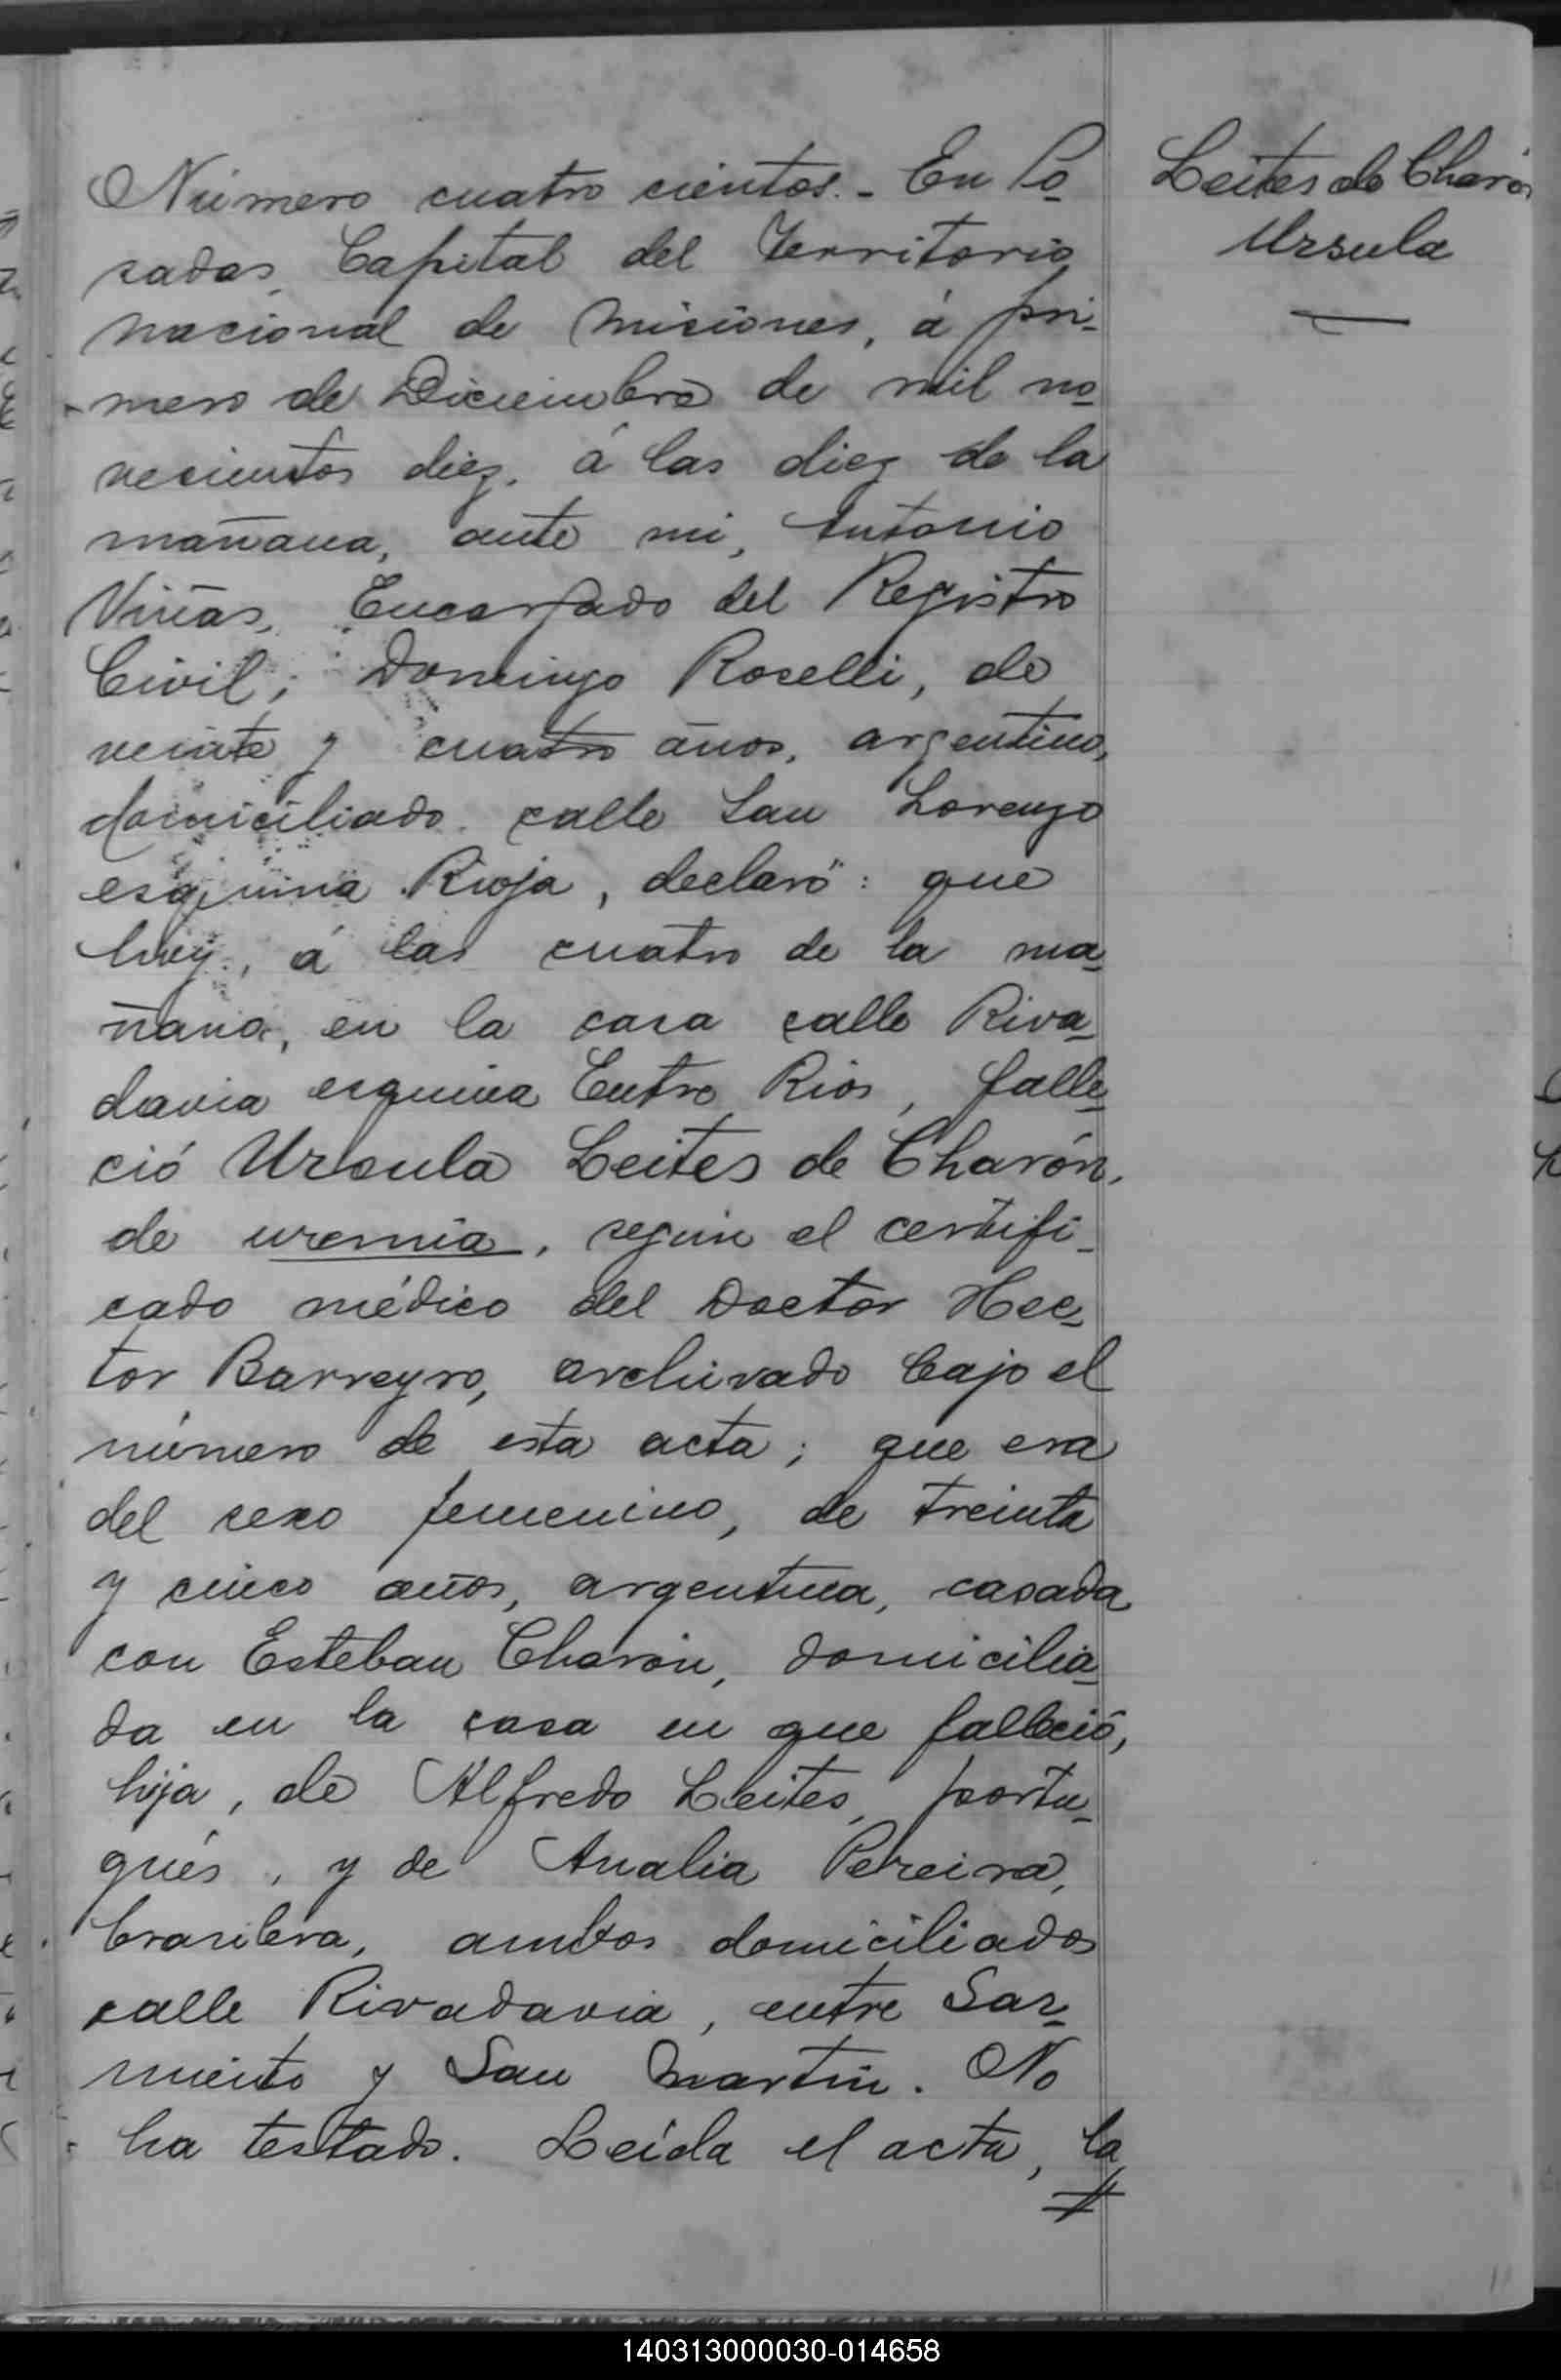 Número cuatro cientos.- En Po-
sadas, Capital del Territorio
nacional de Misiones, á pri-
mero de Diciembre de mil no-
vecientos diez, á las diez de la
mañana, ante mi, Antonio
Viñas, Encargado del Registro
Civil; Domingo Roselli, de
veinte y cuatro años, argentino,
domiciliado calle San Lorenzo
esquina Rioja, declaró: que
hoy, á las cuatro de la ma-
ñana, en la casa calle Riva-
davia esquina Entre Rios, falle-
ció Ursula Leites de Charón,
de uremia, según el certifi-
cado médico del Doctor Hec-
tor Barreyro, archivado bajo el
número de esta acta; que era
del sexo femenino, de treinta
y cinco años, argentina, casada
con Esteban Charón, domicilia-
da en la casa en que falleció,
hija, de Alfredo Leites, portu-
gués, y de Analia Pereira,
brasilera, ambos domiciliados
calle Rivadavia, entre Sar-
miento y San Martin. No
ha testado. Leída el acta, la
Leites de Charón
Ursula
140313000030-014658